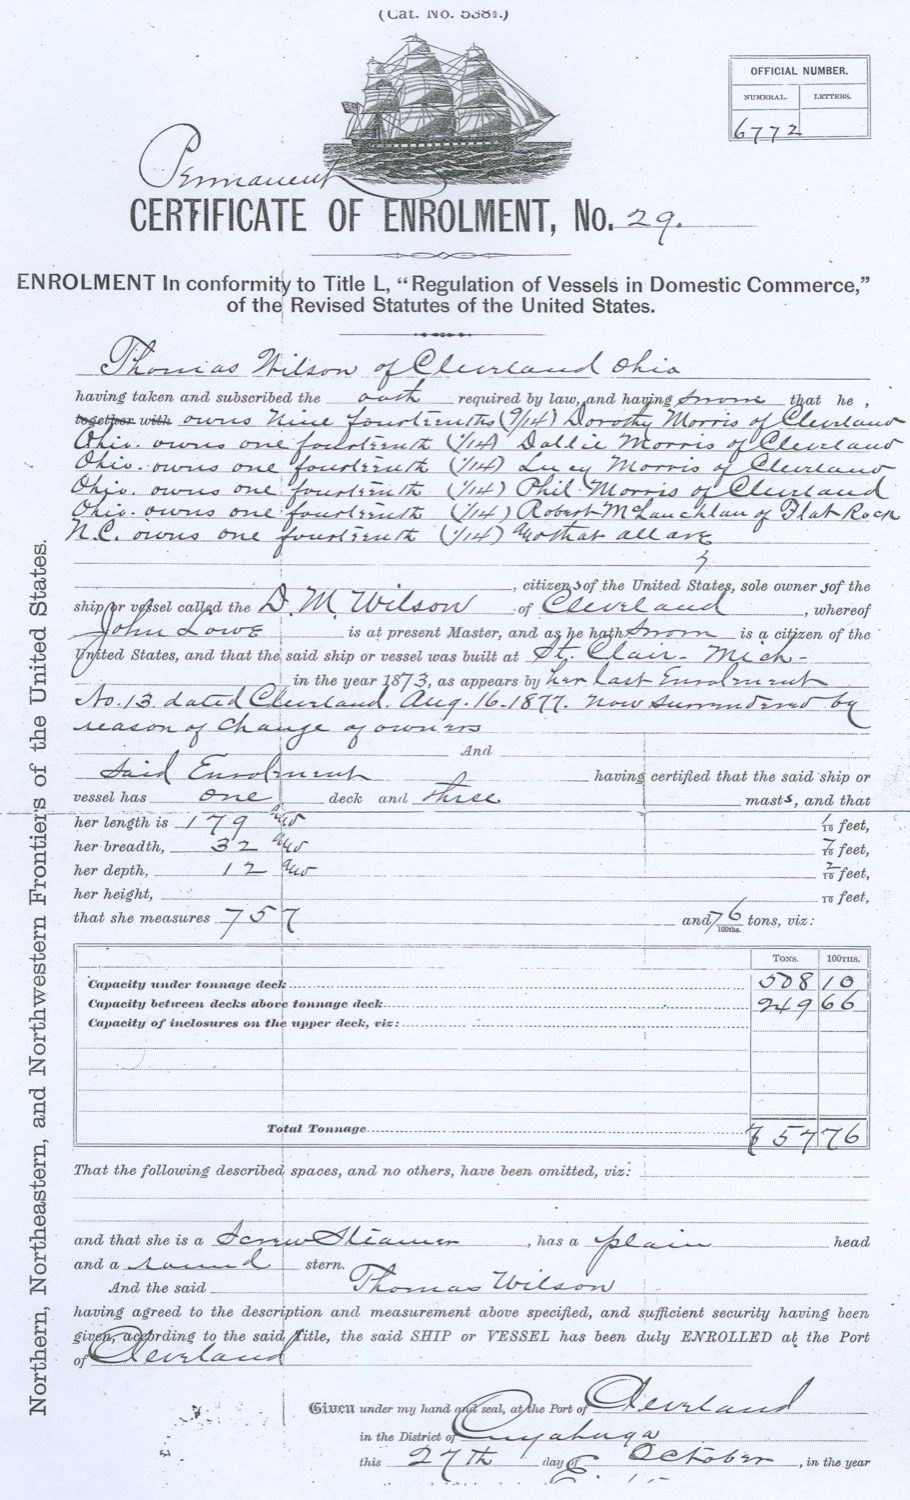 (Cat. No. 5384.)
OFFICIAL NUMBER.
NUMERAL. LETTERS.
6772
Permanent
CERTIFICATE OF ENROLMENT, No. 29.
ENROLMENT In conformity to Title L, “Regulation of Vessels in Domestic Commerce,”
of the Revised Statutes of the United States.
Thomas Wilson of Cleveland Ohio
having taken and subscribed the oath required by law, and having sworn that he,
together with owns Nine fourteenths (9/14) Dorothy Morris of Cleveland
Ohio. owns one fourteenth (1/14) Dallie Morris of Cleveland
Ohio. owns one fourteenth (1/14) Lucy Morris of Cleveland
Ohio. owns one fourteenth (1/14) Phil Morris of Cleveland
Ohio. owns one fourteenth (1/14) Robert McLauchlan of Flat Rock
N.C. owns one fourteenth (1/14) and that all are
citizens of the United States, sole owners of the
ship or vessel called the D. M. Wilson of Cleveland, whereof
John Lowe is at present Master, and as he hath sworn is a citizen of the
United States, and that the said ship or vessel was built at St. Clair - Mich -
in the year 1873, as appears by her last Enrolment
No. 13. dated Cleveland. Aug. 16. 1877. now surrendered by
reason of change of owners
And
Said Enrolment having certified that the said ship or
vessel has one deck and three masts, and that
her length is 179 and 1/10 feet,
her breadth, 32 and 7/10 feet,
her depth, 12 and 2/10 feet,
her height, 10 feet,
that she measures 757 and 76/100ths. tons, viz:
TONS. 100THS.
Capacity under tonnage deck 508 10
Capacity between decks above tonnage deck 249 66
Capacity of inclosures on the upper deck, viz:
Total Tonnage 757 76
That the following described spaces, and no others, have been omitted, viz:
and that she is a Screw Steamer, has a plain head
and a round stern.
And the said Thomas Wilson
having agreed to the description and measurement above specified, and sufficient security having been
given, according to the said title, the said SHIP or VESSEL has been duly ENROLLED at the Port
of Cleveland
Given under my hand and seal, at the Port of Cleveland
in the District of Cuyahoga
this 27th day of October, in the year
Northern, Northeastern, and Northwestern Frontiers of the United States.